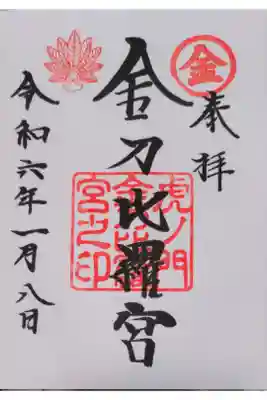 金
奉拝
金刀比羅宮
虎ノ門
金比羅
宮之印
令和六年一月八日